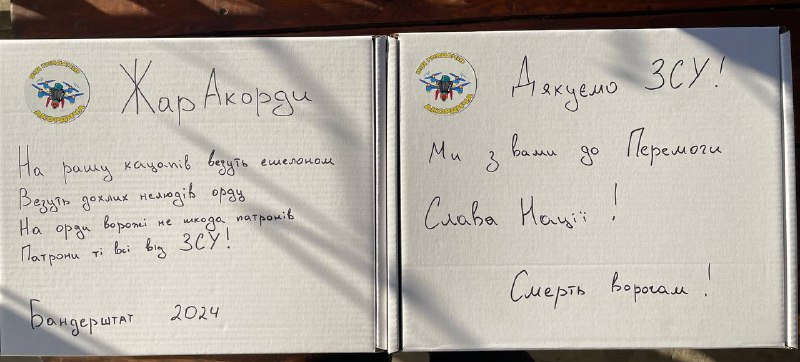 ЖарАкорди
На рашу кацапів везуть ешелоном
Везуть дохлих нелюдів орду
На орди ворожі не шкода патронів
Патрони ті всі від ЗСУ!
Бандерштат 2024
АКОРДИЧА
Дякуємо ЗСУ!
Ми з вами до Перемоги
Слава Нації!
Смерть ворогам!
АКОРДИЧА